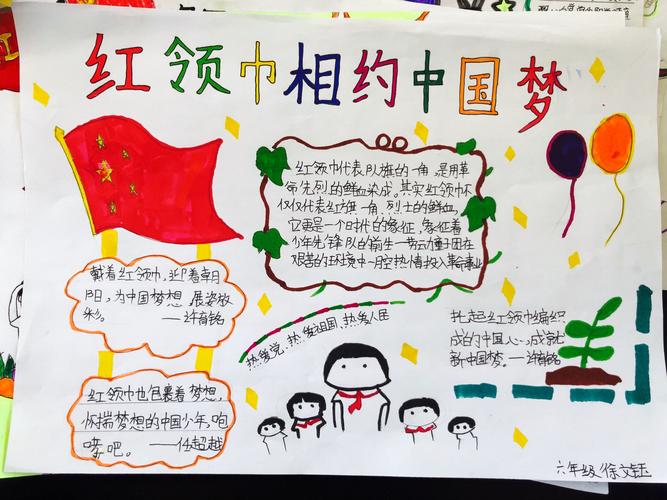 红领巾相约中国梦
红领巾代表队旗的一角,是用革
命先烈的鲜血染成。其实红领巾不
仅仅代表红旗一角,烈士的鲜血,
它更是一个时代的象征,象征着
少年先锋队的前生—劳动童子团在
艰苦的环境中一腔热情投入革命事业
戴着红领巾,迎着朝日
阳,为中国梦想展姿放
彩。——许有铭
热爱党,热爱祖国,热爱人民
扎起红领巾编织
成的中国心,成就
新中国梦。—许有铭
红领巾也包裹着梦想,
怀揣梦想的中国少年,咆
哮吧。——任超越
六年级 徐文钰